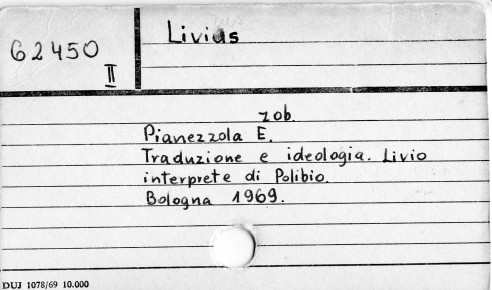 Livius
62450
II
zob.
Pianezzola E.
Traduzione e ideologia. Livio
interprete di Polibio.
Bologna 1969.
DUJ 1078/69 10.000